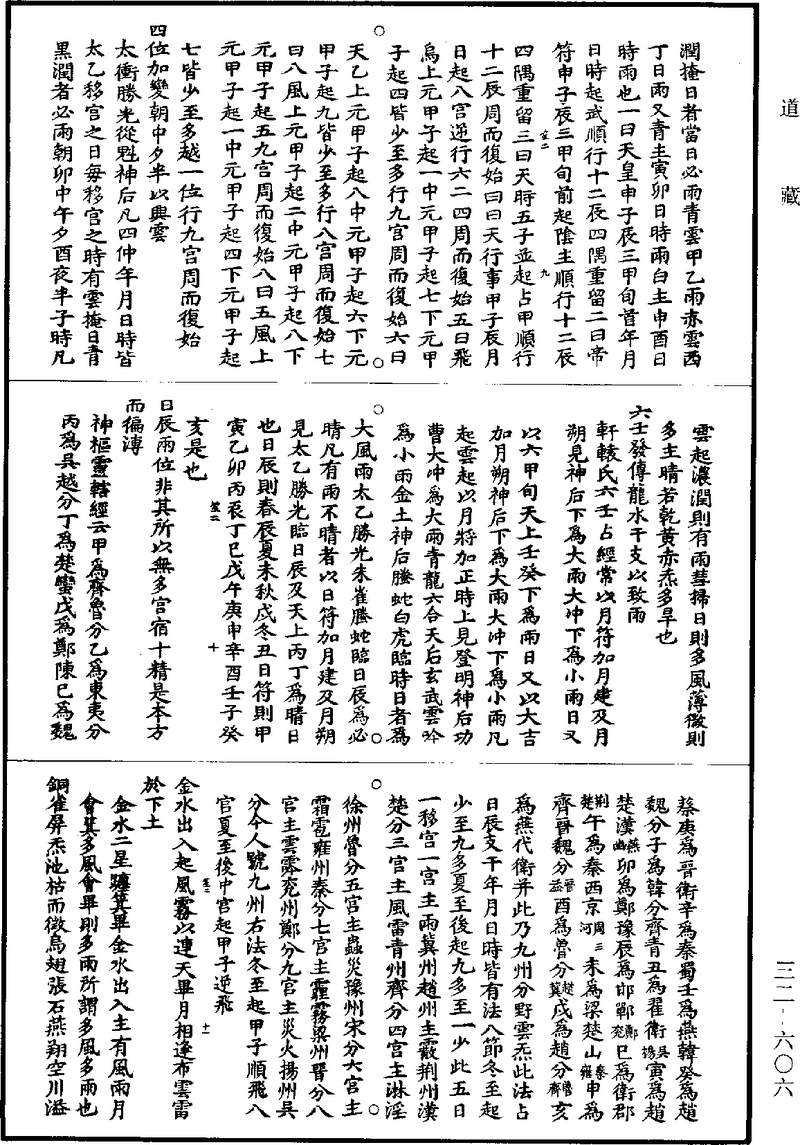 道藏
潤掩日者當日必雨青雲甲乙雨赤雲西
丁日雨又青主寅卯日時雨白主申酉日
時雨也一曰天皇申子辰三甲旬首年月
日時起武順行十二辰四隅重留二曰帝
符申子辰三甲旬前起陰主順行十二辰
四隅重留三曰天時五子並起占甲順行
十二辰周而復始曰曰天行事甲子辰月
日起八宫逆行六二四周而復始五曰飛
烏上元甲子起一中元甲子起七下元甲
子起四皆少至多行九宫周而復始六曰
天乙上元甲子起八中元甲子起六下元
甲子起九皆少至多行八宫周而復始七
曰八風上元甲子起二中元甲子起八下
元甲子起五九宫周而復始八曰五風上
元甲子起一中元甲子起四下元甲子起
七皆少至多越一位行九宫周而復始
四位加變朝中夕半以興雲
太衝勝光從魁神后凡四仲年月日時皆
太乙移宫之日每移宫之時有雲掩日青
黑潤者必雨朝卯中午夕酉夜半子時凡
雲起濃潤則有雨彗掃日則多風薄微則
多主晴若乾黄赤炁多旱也
六壬發傳龍水干支以致雨
軒轅氏六壬占經常以月符加月建及月
朔見神后下為大雨大冲下為小雨日又
以六甲旬天上壬癸下為雨日又以大吉
加月朔神后下為大雨大冲下為小雨凡
起雲起以月將加正時上見登明神后功
曹大冲為大雨青龍六合天后玄武雲吟
為小雨金土神后螣蛇白虎臨時日者為
大風雨太乙勝光朱雀螣蛇臨日辰為必
晴凡有雨不晴者以日符加月建及月朔
見太乙勝光臨日辰及天上丙丁為晴日
也日辰則春辰夏未秋戌冬丑日符則甲
寅乙卯丙辰丁巳戊午庚申辛酉壬子癸
亥是也
日辰兩位非其所以無多宫宿十精是本方
而徧溥
神樞靈轄經云甲為齊魯分乙為東夷分
丙為吴越分丁為楚蠻戊為鄭陳巳為魏
蔡庚為晉衛辛為秦蜀壬為燕韓癸為趙
魏分子為韓分齊青丑為翟衛吴揚寅為趙
楚漢燕幽卯為鄭豫辰為邯鄲鄭兖巳為衛郡
荆楚午為秦西京周三河未為梁楚山秦雍申為
齊晉魏分晉益酉為魯分趙冀戌為趙分魯齊亥
為燕代衛并此乃九州分野雲炁此法占
日辰支干年月日時皆有法八節冬至起
少至九多夏至後起九多至一少此五日
一移宫一宫主雨冀州趙州主霰荆州漢
楚分三宫主風雷青州齊分四宫主淋淫
徐州魯分五宫主蟲災豫州宋分六宫主
霜雹雍州秦分七宫主霾霧梁州晋分八
宫主雲霧兖州鄭分九宫主災火揚州吴
分今人號九州右法冬至起甲子順飛八
宫夏至後中宫起甲子逆飛
金水出入起風霧以連天畢月相逢布雲雷
於下土
金水二星躔箕畢金水出入主有風雨月
會箕多風會畢則多雨所謂多風多雨也
銅雀屏炁池枯而微烏翅張石燕翔空川溢
三二-六〇六